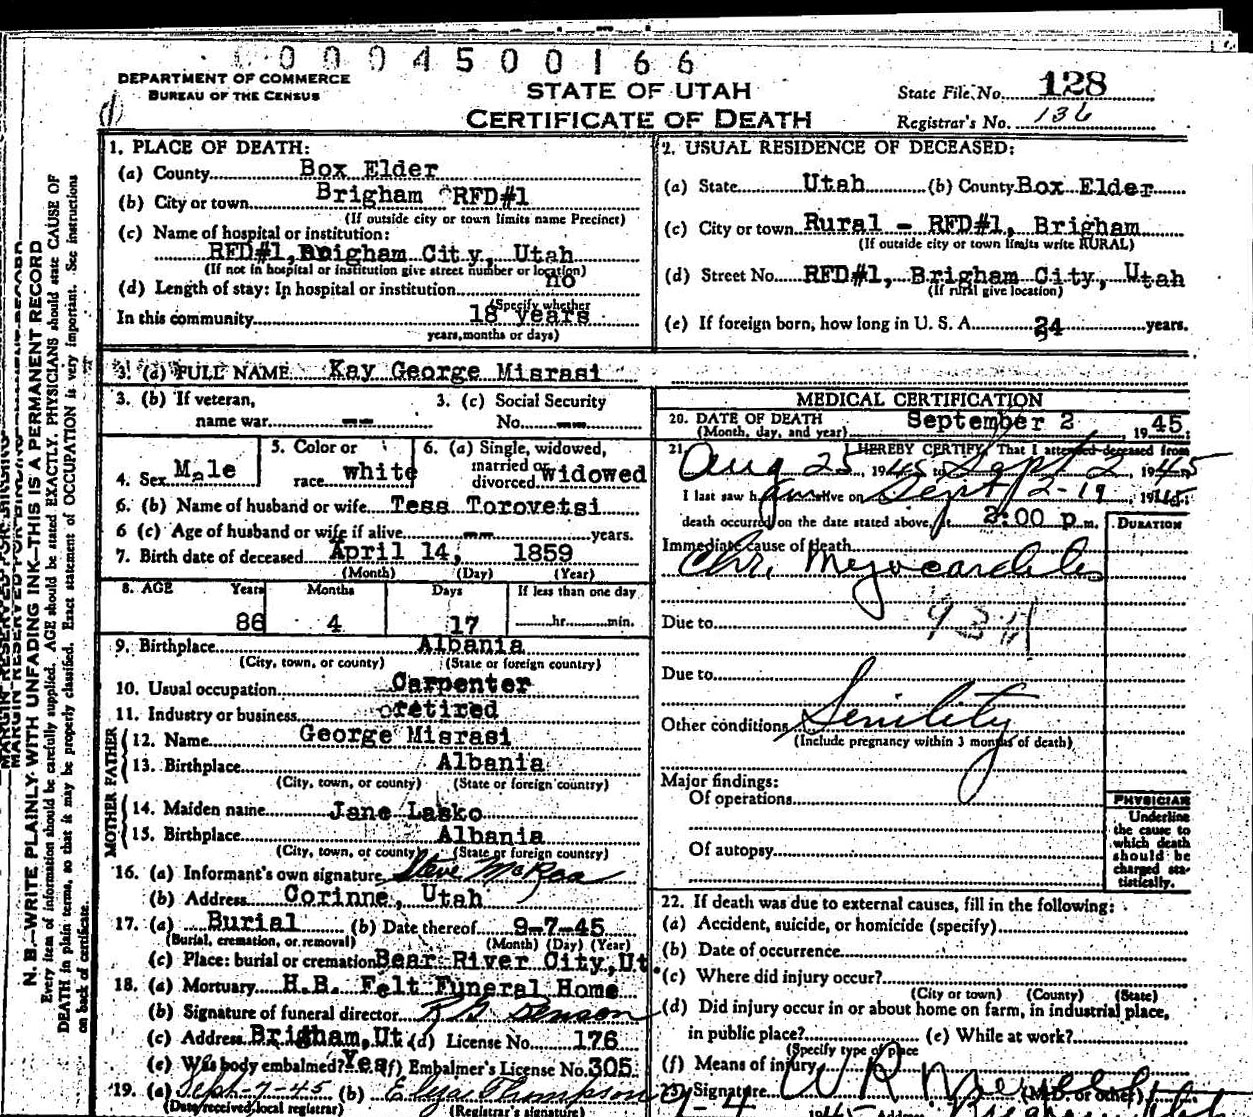 0 0 0 4 5 0 0 1 6 6
DEPARTMENT OF COMMERCE
BUREAU OF THE CENSUS
STATE OF UTAH
CERTIFICATE OF DEATH
State File No. 128
Registrar's No. 136
1. PLACE OF DEATH:
(a) County Box Elder
(b) City or town Brigham RFD#1
(If outside city or town limits name Precinct)
(c) Name of hospital or institution:
RFD#1, Brigham City, Utah
(If not in hospital or institution give street number or location)
(d) Length of stay: In hospital or institution no
(Specify whether
In this community 18 years
years, months or days)
2. USUAL RESIDENCE OF DECEASED:
(a) State Utah (b) County Box Elder
(c) City or town Rural - RFD#1, Brigham
(If outside city or town limits write RURAL)
(d) Street No. RFD#1, Brigham City, Utah
(If rural give location)
(e) If foreign born, how long in U. S. A. 34 years.
3. (a) FULL NAME Kay George Misrasi
3. (b) If veteran, name war --
3. (c) Social Security No. --
4. Sex Male
5. Color or race white
6. (a) Single, widowed, married or divorced widowed
6. (b) Name of husband or wife Tess Torovetsi
6 (c) Age of husband or wife if alive -- years.
7. Birth date of deceased April 14, 1859
(Month) (Day) (Year)
8. AGE Years Months Days If less than one day
86 4 17 hr. min.
9. Birthplace Albania
(City, town, or county) (State or foreign country)
10. Usual occupation Carpenter
11. Industry or business retired
FATHER
12. Name George Misrasi
13. Birthplace Albania
(City, town, or county) (State or foreign country)
MOTHER
14. Maiden name Jane Lasko
15. Birthplace Albania
(City, town, or county) (State or foreign country)
16. (a) Informant's own signature Steve McRaa
(b) Address Corinne, Utah
17. (a) Burial (b) Date thereof 9-7-45
(Burial, cremation, or removal) (Month) (Day) (Year)
(c) Place: burial or cremation Bear River City, Ut.
18. (a) Mortuary H.B. Felt Funeral Home
(b) Signature of funeral director R G Benson
(c) Address Brigham, Ut (d) License No. 176
(e) Was body embalmed? Yes (f) Embalmer's License No. 305
19. (a) Sept-7-45 (b) Eliza Thompson
(Date received local registrar) (Registrar's signature)
MEDICAL CERTIFICATION
20. DATE OF DEATH September 2 1945
(Month, day, and year)
21. I HEREBY CERTIFY, That I attended deceased from
Aug 25 1945 to Sept 2 1945
I last saw h im alive on Sept 2-19 1945
death occurred on the date stated above, at 2:00 p m.
DURATION
Immediate cause of death
Chr. Myocarditis
Due to 93
Due to
Other conditions Senility
(Include pregnancy within 3 months of death)
Major findings:
Of operations
Of autopsy
PHYSICIAN
Underline
the cause to
which death
should be
charged sta-
tistically.
22. If death was due to external causes, fill in the following:
(a) Accident, suicide, or homicide (specify)
(b) Date of occurrence
(c) Where did injury occur?
(City or town) (County) (State)
(d) Did injury occur in or about home on farm, in industrial place,
in public place? (e) While at work?
(Specify type of place
(f) Means of injury
Signature W R (M.D. or other)
N. B.—WRITE PLAINLY WITH UNFADING INK—THIS IS A PERMANENT RECORD
Every item of information should be carefully supplied. AGE should be stated EXACTLY. PHYSICIANS should state CAUSE OF
DEATH in plain terms, so that it may be properly classified. Exact statement of OCCUPATION is very important. See instructions
on back of certificate.